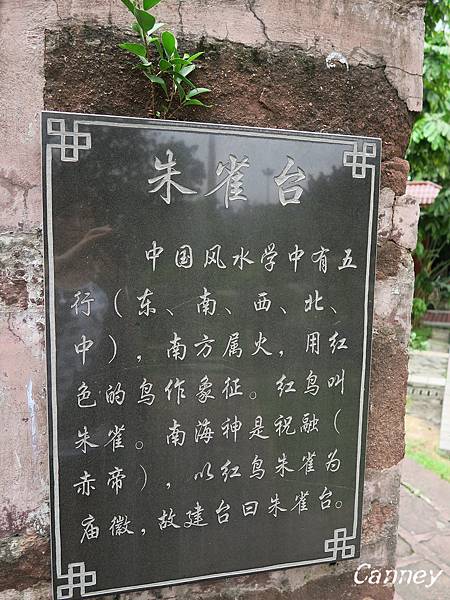 朱雀台
中国风水学中有五
行（东、南、西、北、
中），南方属火，用红
色的鸟作象征。红鸟叫
朱雀。南海神是祝融（
赤帝），以红鸟朱雀为
庙徽，故建台曰朱雀台。
Canney